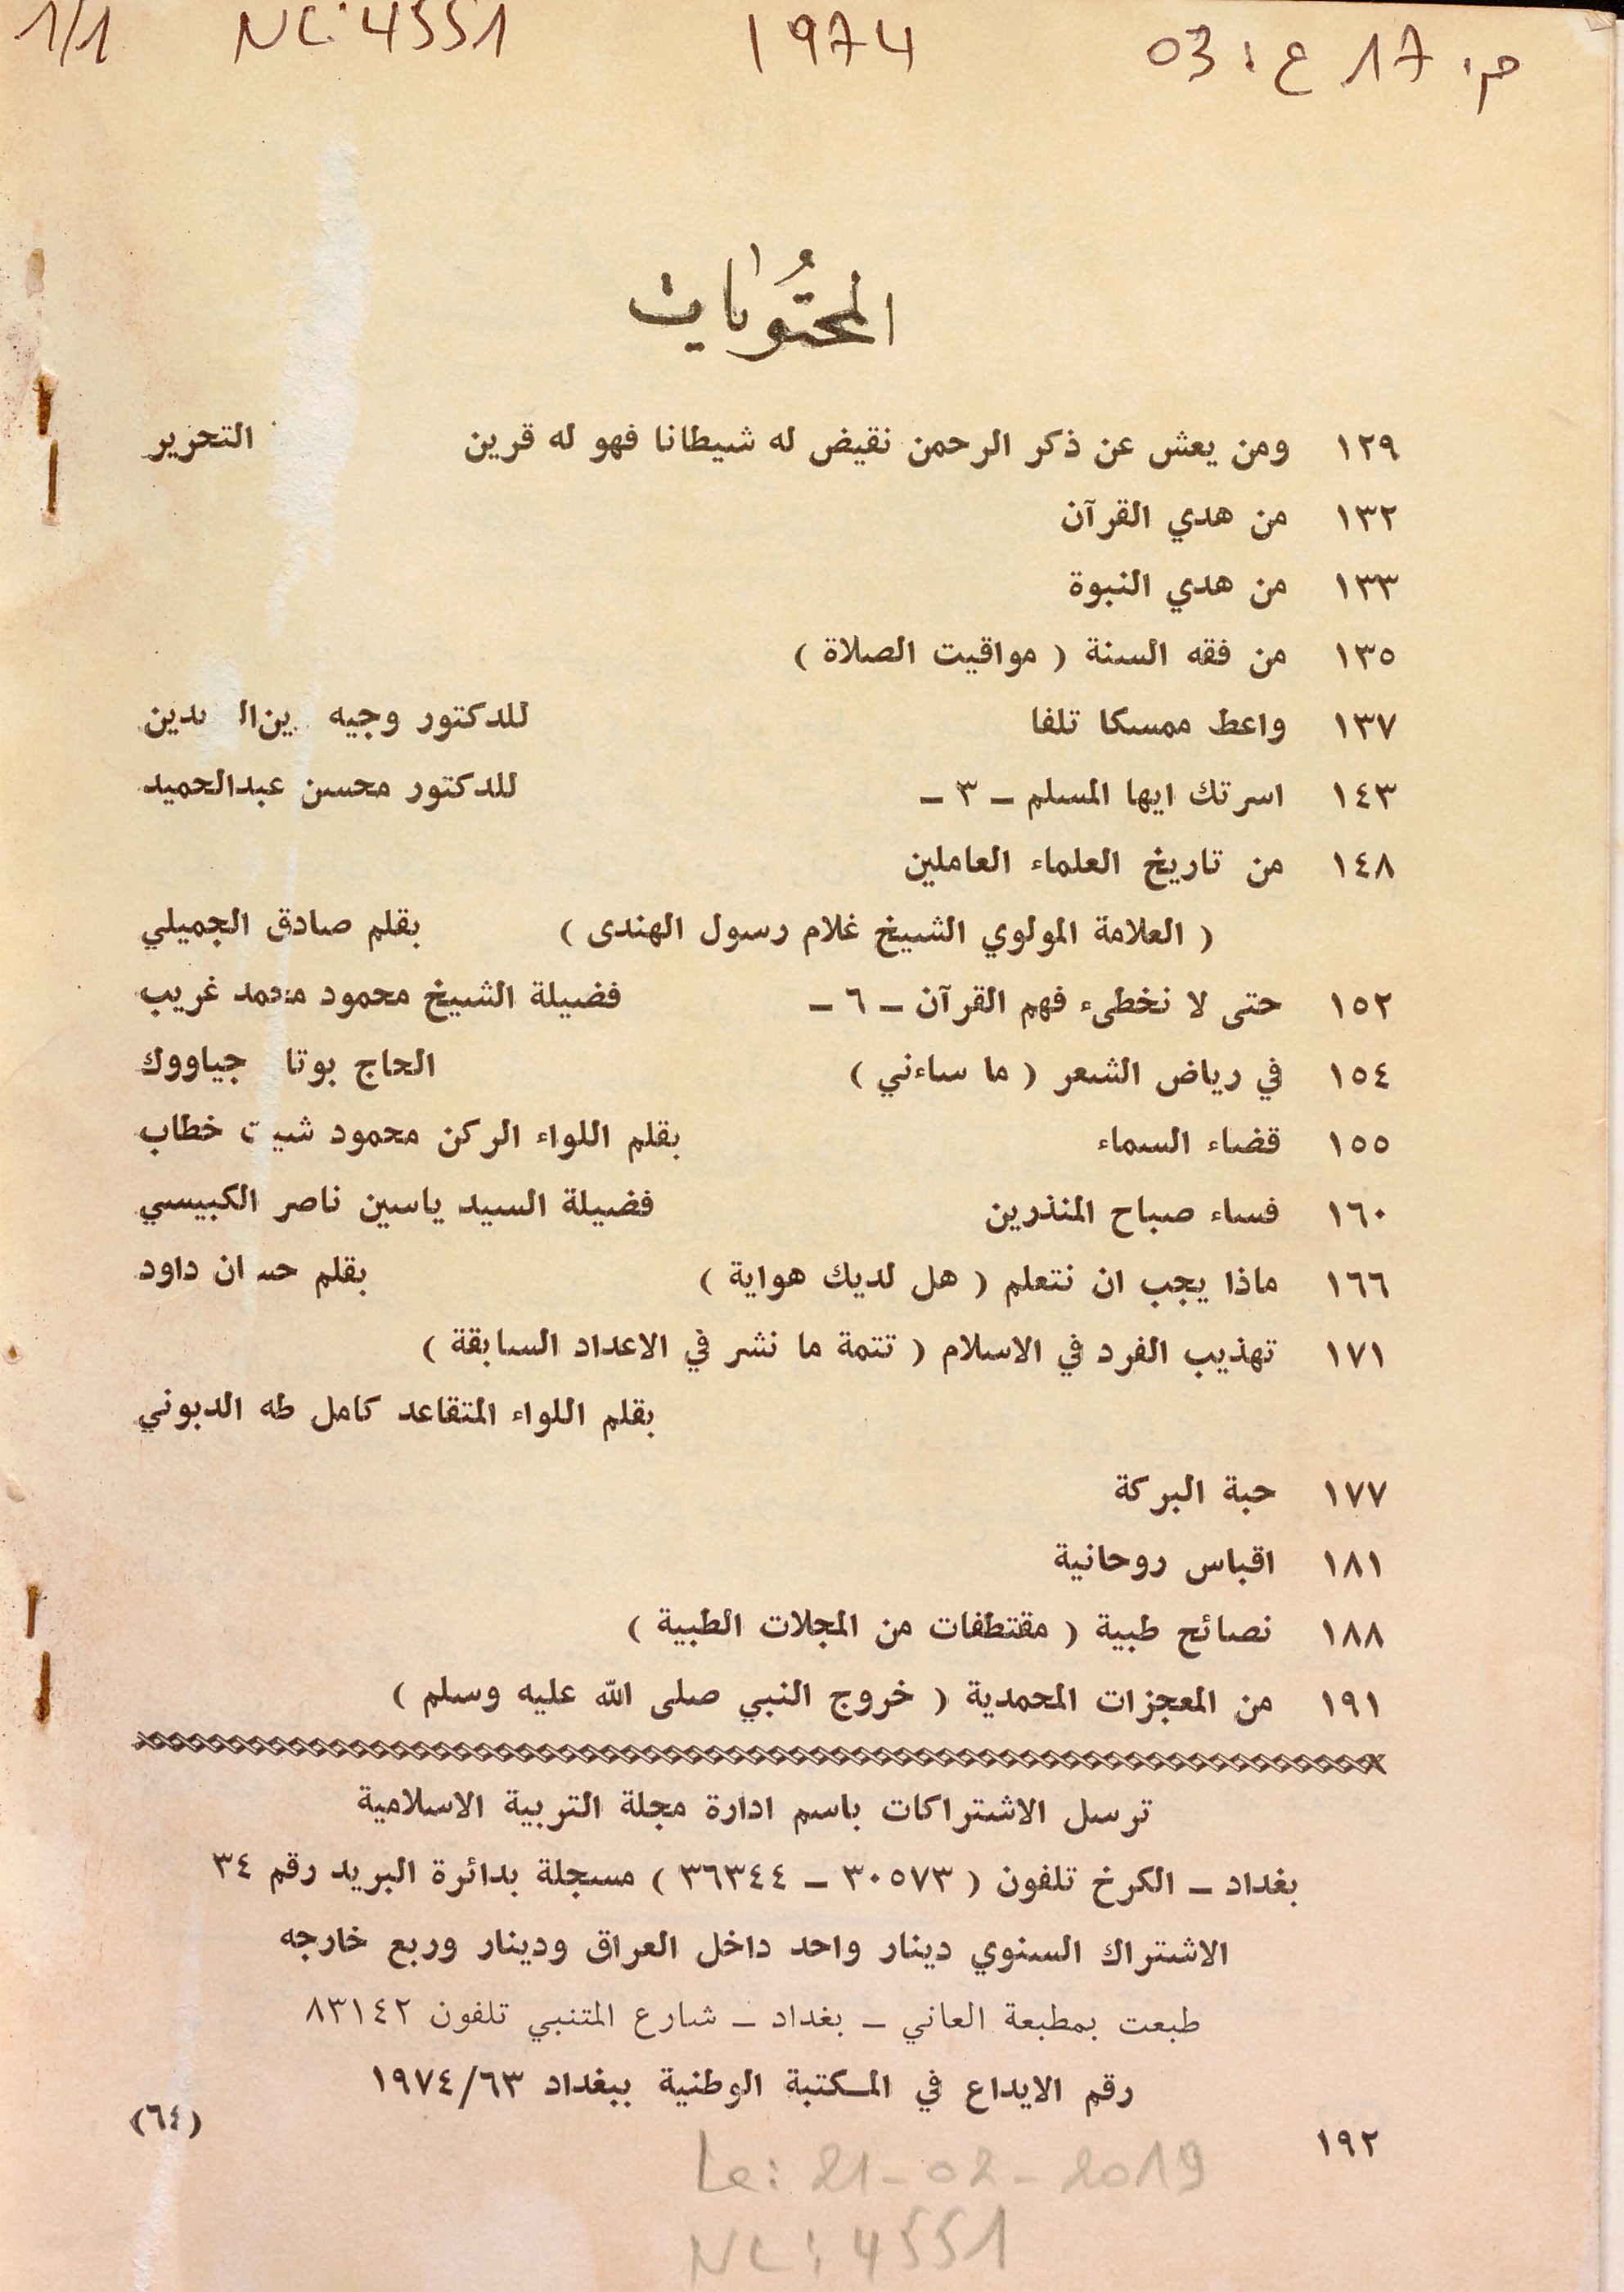 م: 17 ع: 03 1974 NC: 4551 1/1
المحتويات
١٢٩ ومن يعش عن ذكر الرحمن نقيض له شيطانا فهو له قرين التحرير
١٣٢ من هدي القرآن
١٣٣ من هدي النبوة
١٣٥ من فقه السنة ( مواقيت الصلاة )
١٣٧ واعط ممسكا تلفا للدكتور وجيه
١٤٣ اسرتك ايها المسلم ـ ٣ ـ للدكتور محسن عبدالحميد
١٤٨ من تاريخ العلماء العاملين
( العلامة المولوي الشيخ غلام رسول الهندى ) بقلم صادق الجميلي
١٥٢ حتى لا نخطىء فهم القرآن ـ ٦ ـ فضيلة الشيخ محمود محمد غريب
١٥٤ في رياض الشعر ( ما ساءني ) الحاج بوتا جياووك
١٥٥ قضاء السماء بقلم اللواء الركن محمود شيت خطاب
١٦٠ فساء صباح المنذرين فضيلة السيد ياسين ناصر الكبيسي
١٦٦ ماذا يجب ان نتعلم ( هل لديك هواية ) بقلم حسان داود
١٧١ تهذيب الفرد في الاسلام ( تتمة ما نشر في الاعداد السابقة )
بقلم اللواء المتقاعد كامل طه الدبوني
١٧٧ حبة البركة
١٨١ اقباس روحانية
١٨٨ نصائح طبية ( مقتطفات من المجلات الطبية )
١٩١ من المعجزات المحمدية ( خروج النبي صلى الله عليه وسلم )
ترسل الاشتراكات باسم ادارة مجلة التربية الاسلامية
بغداد ـ الكرخ تلفون ( ٣٠٥٧٣ ـ ٣٦٣٤٤ ) مسجلة بدائرة البريد رقم ٣٤
الاشتراك السنوي دينار واحد داخل العراق ودينار وربع خارجه
طبعت بمطبعة العاني ـ بغداد ـ شارع المتنبي تلفون ٨٣١٤٢
رقم الايداع في المكتبة الوطنية ببغداد ١٩٧٤/٦٣
١٩٢ (٦٤)
Le: 21-02-2019
NC: 4551